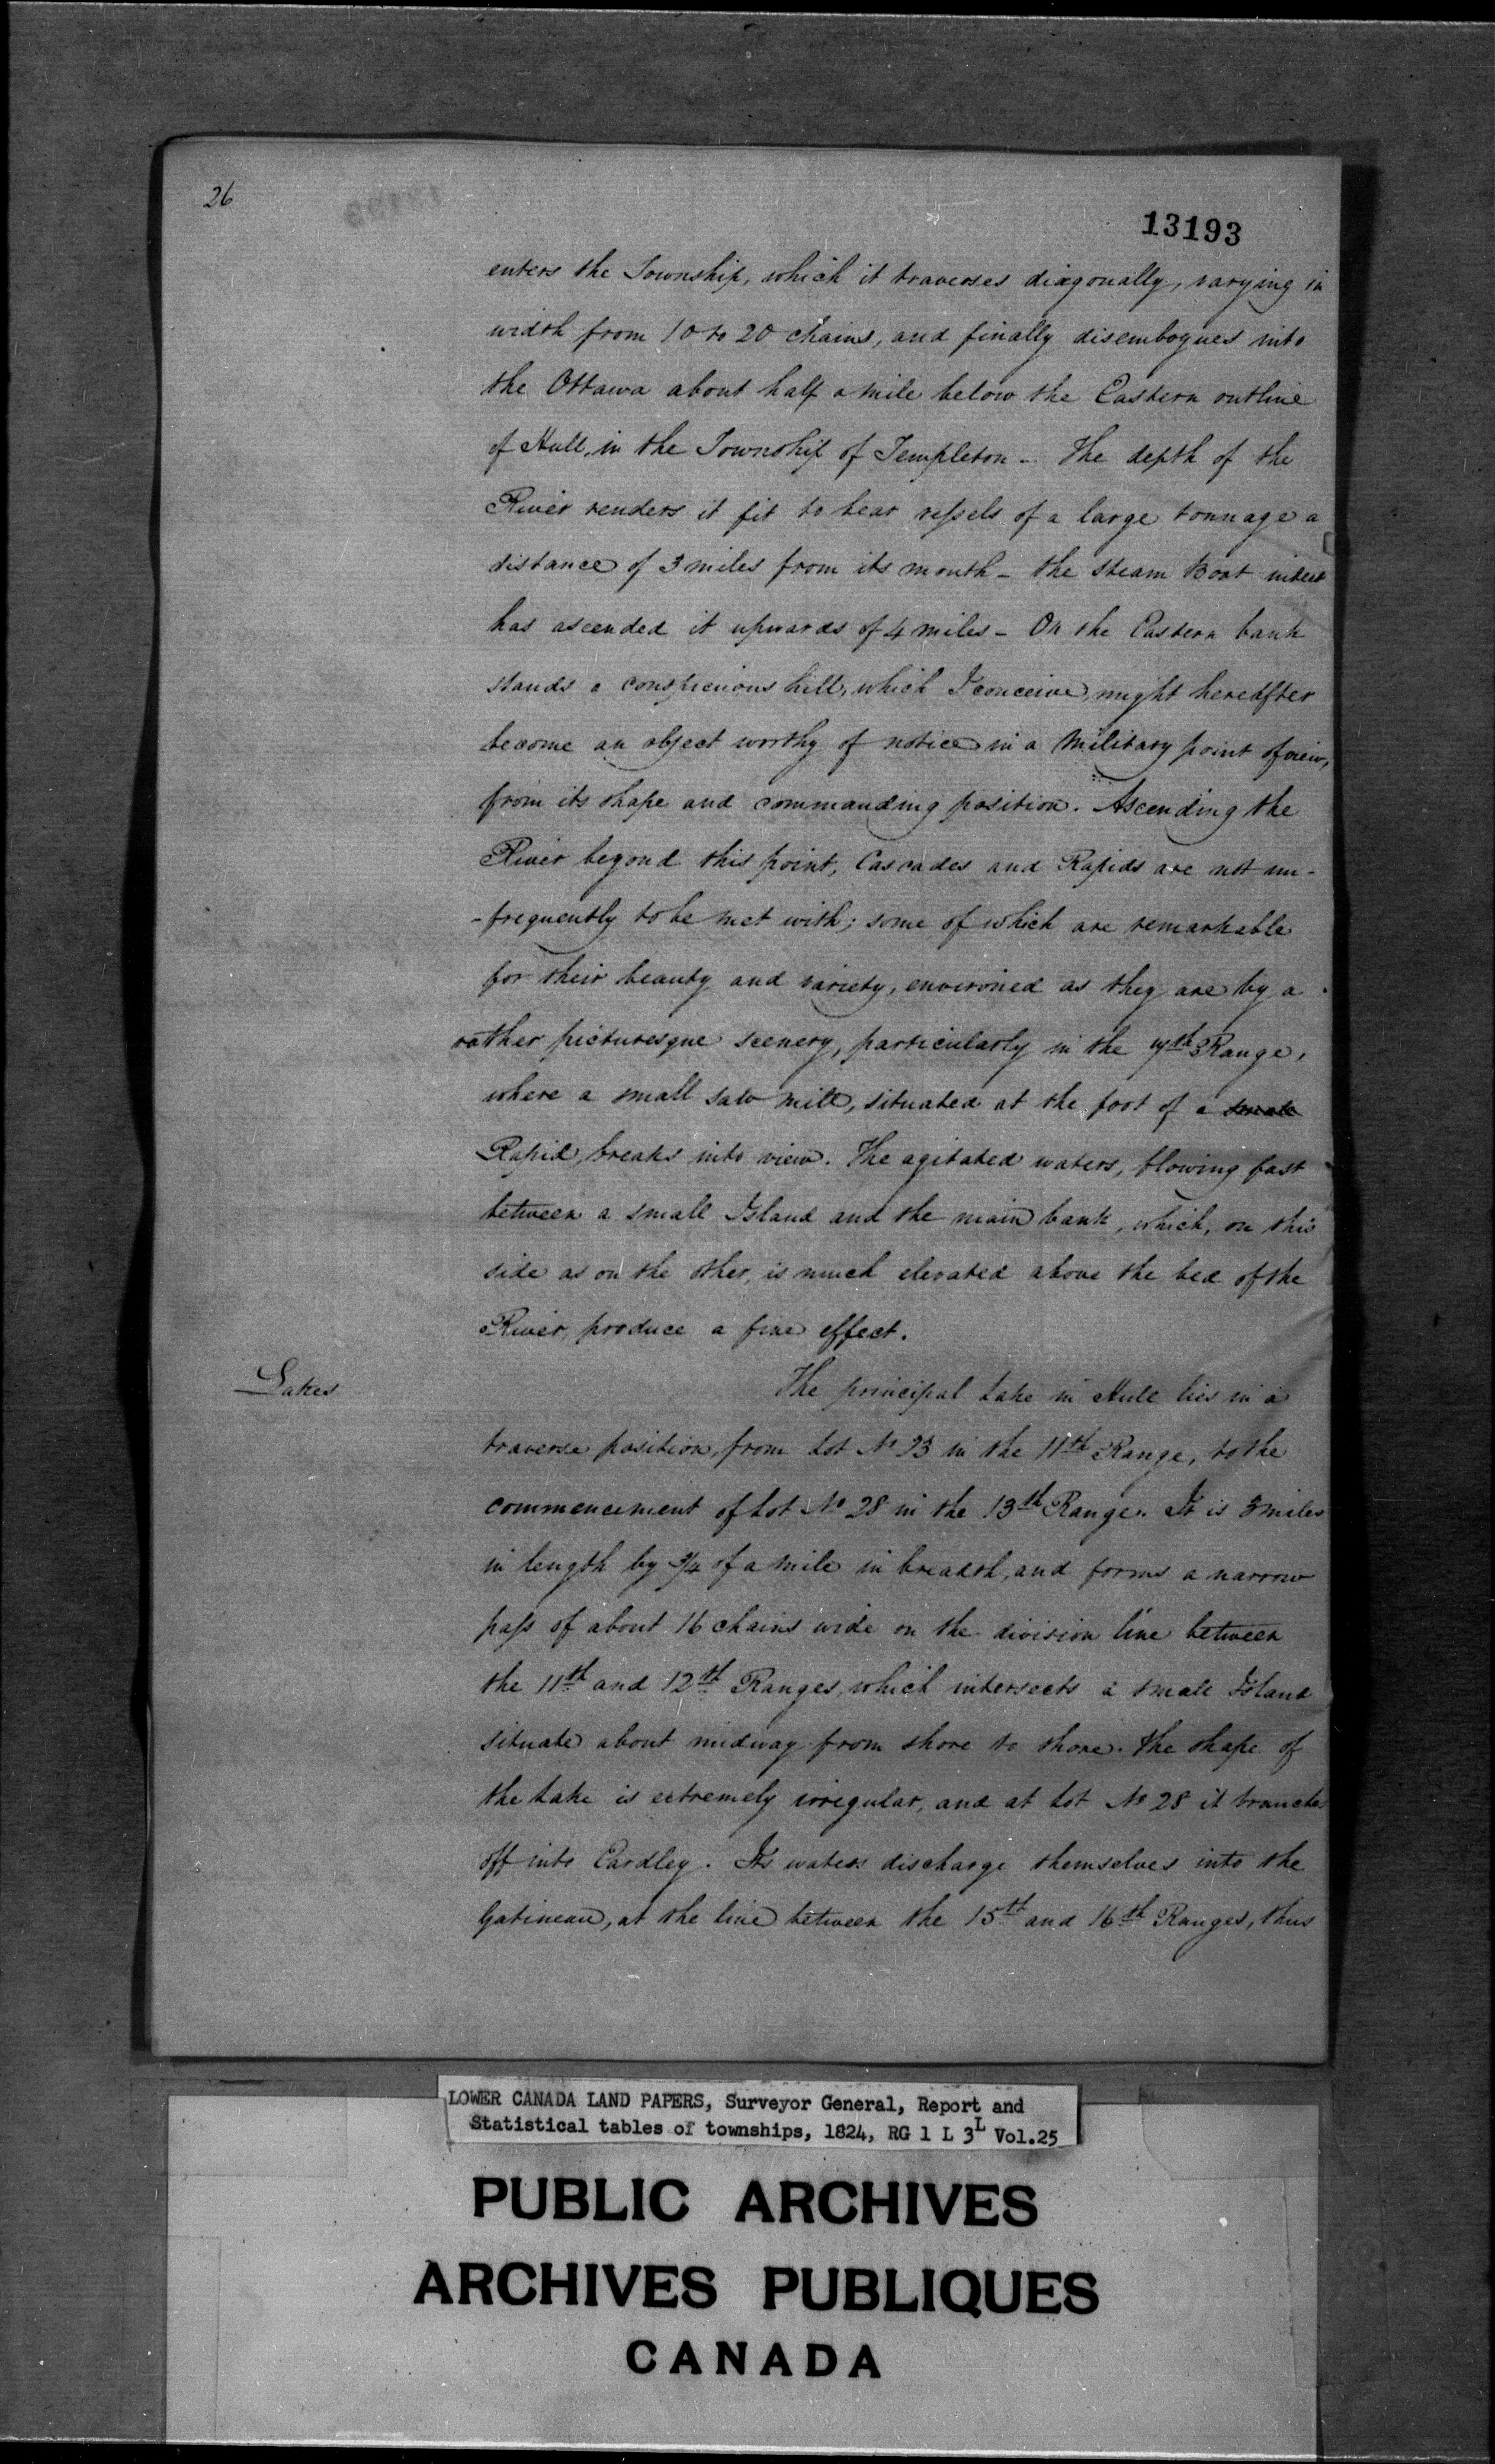 26
13193
enters the Township, which it traverses diagonally, varying in
width from 10 to 20 chains, and finally disembogues into
the Ottawa about half a mile below the Eastern outline
of Hull, in the Township of Templeton – The depth of the
River renders it fit to bear vessels of a large tonnage a
distance of 3 miles from its mouth – the Steam Boat indeed
has ascended it upwards of 4 miles – On the Eastern bank
stands a conspicuous hill, which I conceive, might hereafter
become an object worthy of notice in a Military point of view,
from its shape and commanding position. Ascending the
River beyond this point, Cascades and Rapids are not un-
-frequently to be met with; some of which are remarkable
for their beauty and variety, environed as they are by a
rather picturesque scenery, particularly in the 7th Range,
where a small saw mill, situated at the foot of a small
Rapid, breaks into view. The agitated waters, flowing fast
between a small Island and the main bank, which, on this
side as on the other, is much elevated above the bed of the
River, produce a fine effect.
Lakes
The principal Lake in Hull lies in a
traverse position, from Lot No 23 in the 11th Range, to the
commencement of Lot No 28 in the 13th Range. It is 3 miles
in length by 3/4 of a mile in breadth, and forms a narrow
pass of about 16 chains wide on the division line between
the 11th and 12th Ranges, which intersects a small Island
situate about midway from shore to shore. The shape of
the Lake is extremely irregular, and at Lot No 28 it branches
off into Eardley. Its waters discharge themselves into the
Gatineau, at the line between the 15th and 16th Ranges, thus
LOWER CANADA LAND PAPERS, Surveyor General, Report and
Statistical tables of townships, 1824, RG 1 L 3L Vol.25
PUBLIC ARCHIVES
ARCHIVES PUBLIQUES
CANADA